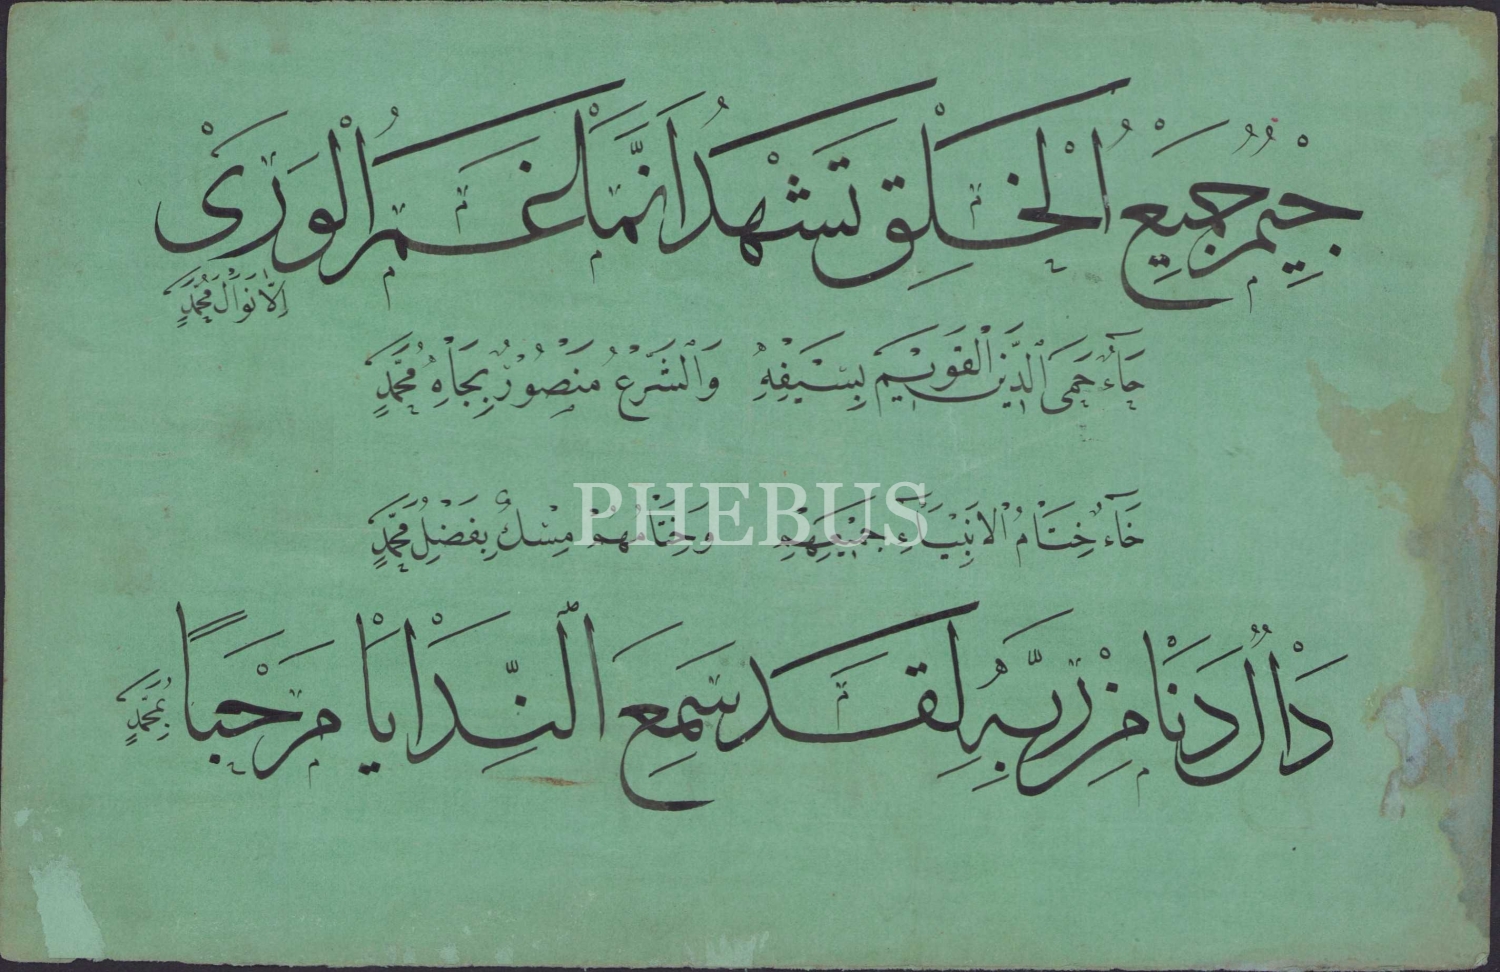 جِيْمٌ جَمِيْعُ الْخَلْقِ تَشْهَدُ اَنَّمَا غَمَرُ الْوَرٰىْ
اِلَّا نَوَالُ مُحَمَّدٍ
حَاءٌ حَمَى الدِّيْنَ الْقَوِيْمَ بِسَيْفِهِ وَالشَّرْعُ مَنْصُوْرٌ بِجَاهِ مُحَمَّدٍ
خَاءٌ خِتَامُ الْاَنْبِيَاءِ جَمِيْعِهِمْ وَخِتَامُهُمْ مِسْكٌ بِفَضْلِ مُحَمَّدٍ
PHEBUS
دَالٌ دَنَا مِنْ رَبِّهِ لَقَدْ سَمِعَ النِّدَا يَا مَرْحَبًا
بِمُحَمَّدٍ